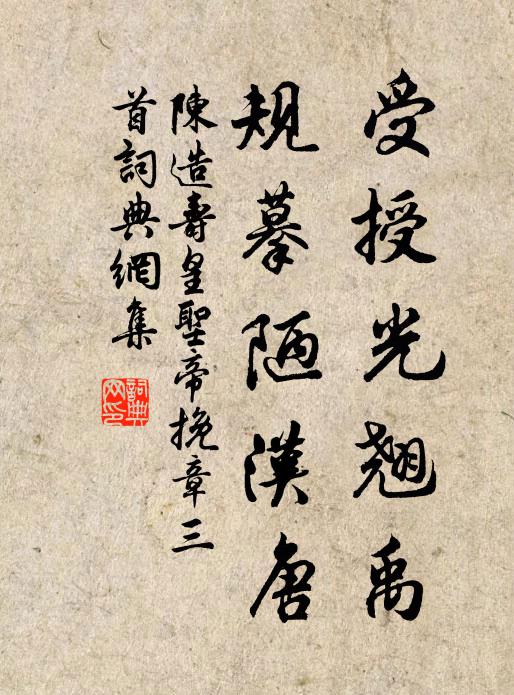 受授光翹禹
規摹陋漢唐
陳造壽皇聖帝挽章三
首詞典網集
詞典
网印